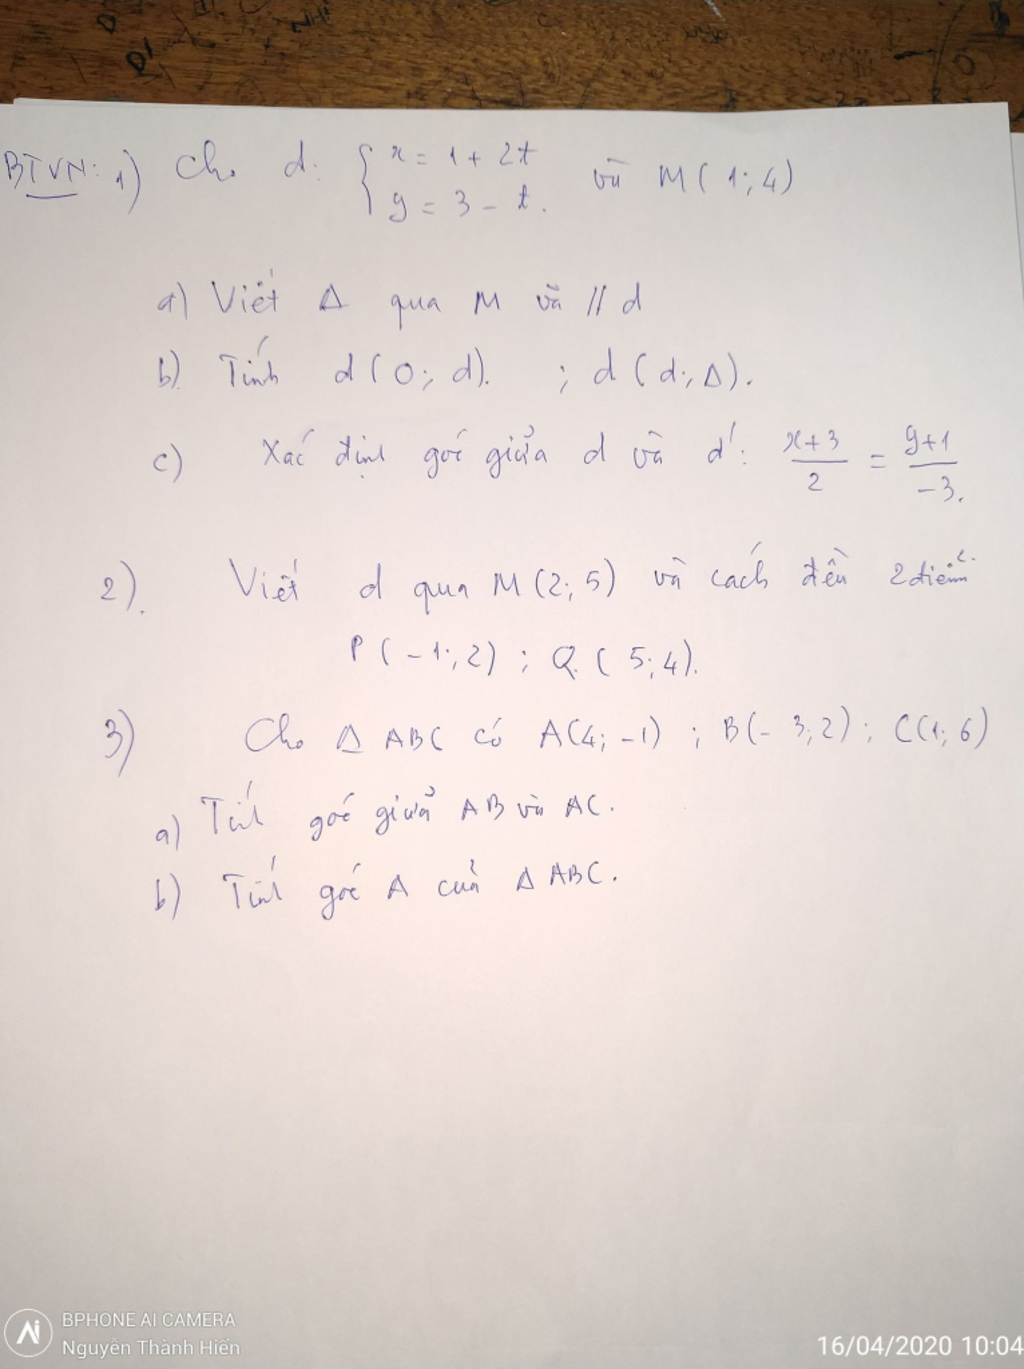 BTVN: 1) Cho d: { x = 1 + 2t
y = 3 - t. và M(1;4)
a) Viết Δ qua M và // d
b) Tính d(O; d). ; d(d; Δ).
c) Xác định góc giữa d và d': (x+3)/2 = (y+1)/-3.
2). Viết d qua M(2;5) và cách đều 2 điểm
P(-1;2) ; Q(5;4).
3) Cho Δ ABC có A(4;-1) ; B(-3;2) ; C(1;6)
a) Tính góc giữa AB và AC.
b) Tính góc A của Δ ABC.
Ai BPHONE AI CAMERA
Nguyễn Thành Hiến
16/04/2020 10:04